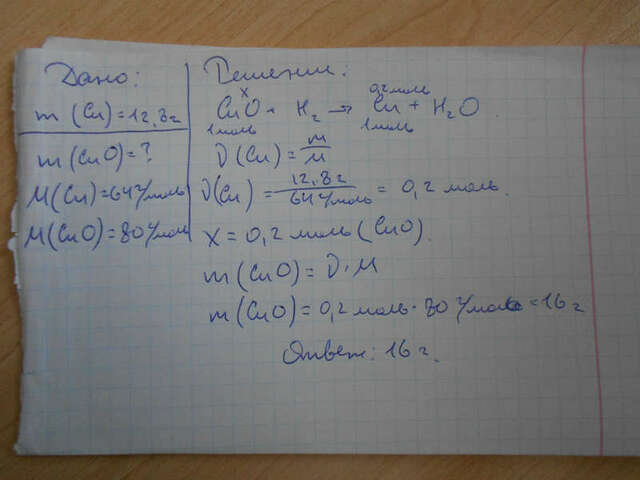 Дано:
m (Cu) = 12,8г
m (CuO) = ?
M(Cu) = 64 г/моль
M(CuO) = 80 г/моль
Решение:
x 0,2 моль
CuO + H₂ → Cu + H₂O
1 моль 1 моль
ν (Cu) = m/M
ν(Cu) = 12,8г / 64 г/моль = 0,2 моль.
X = 0,2 моль (CuO).
m (CuO) = ν · M
m (CuO) = 0,2 моль · 80 г/моль = 16 г
Ответ: 16 г.